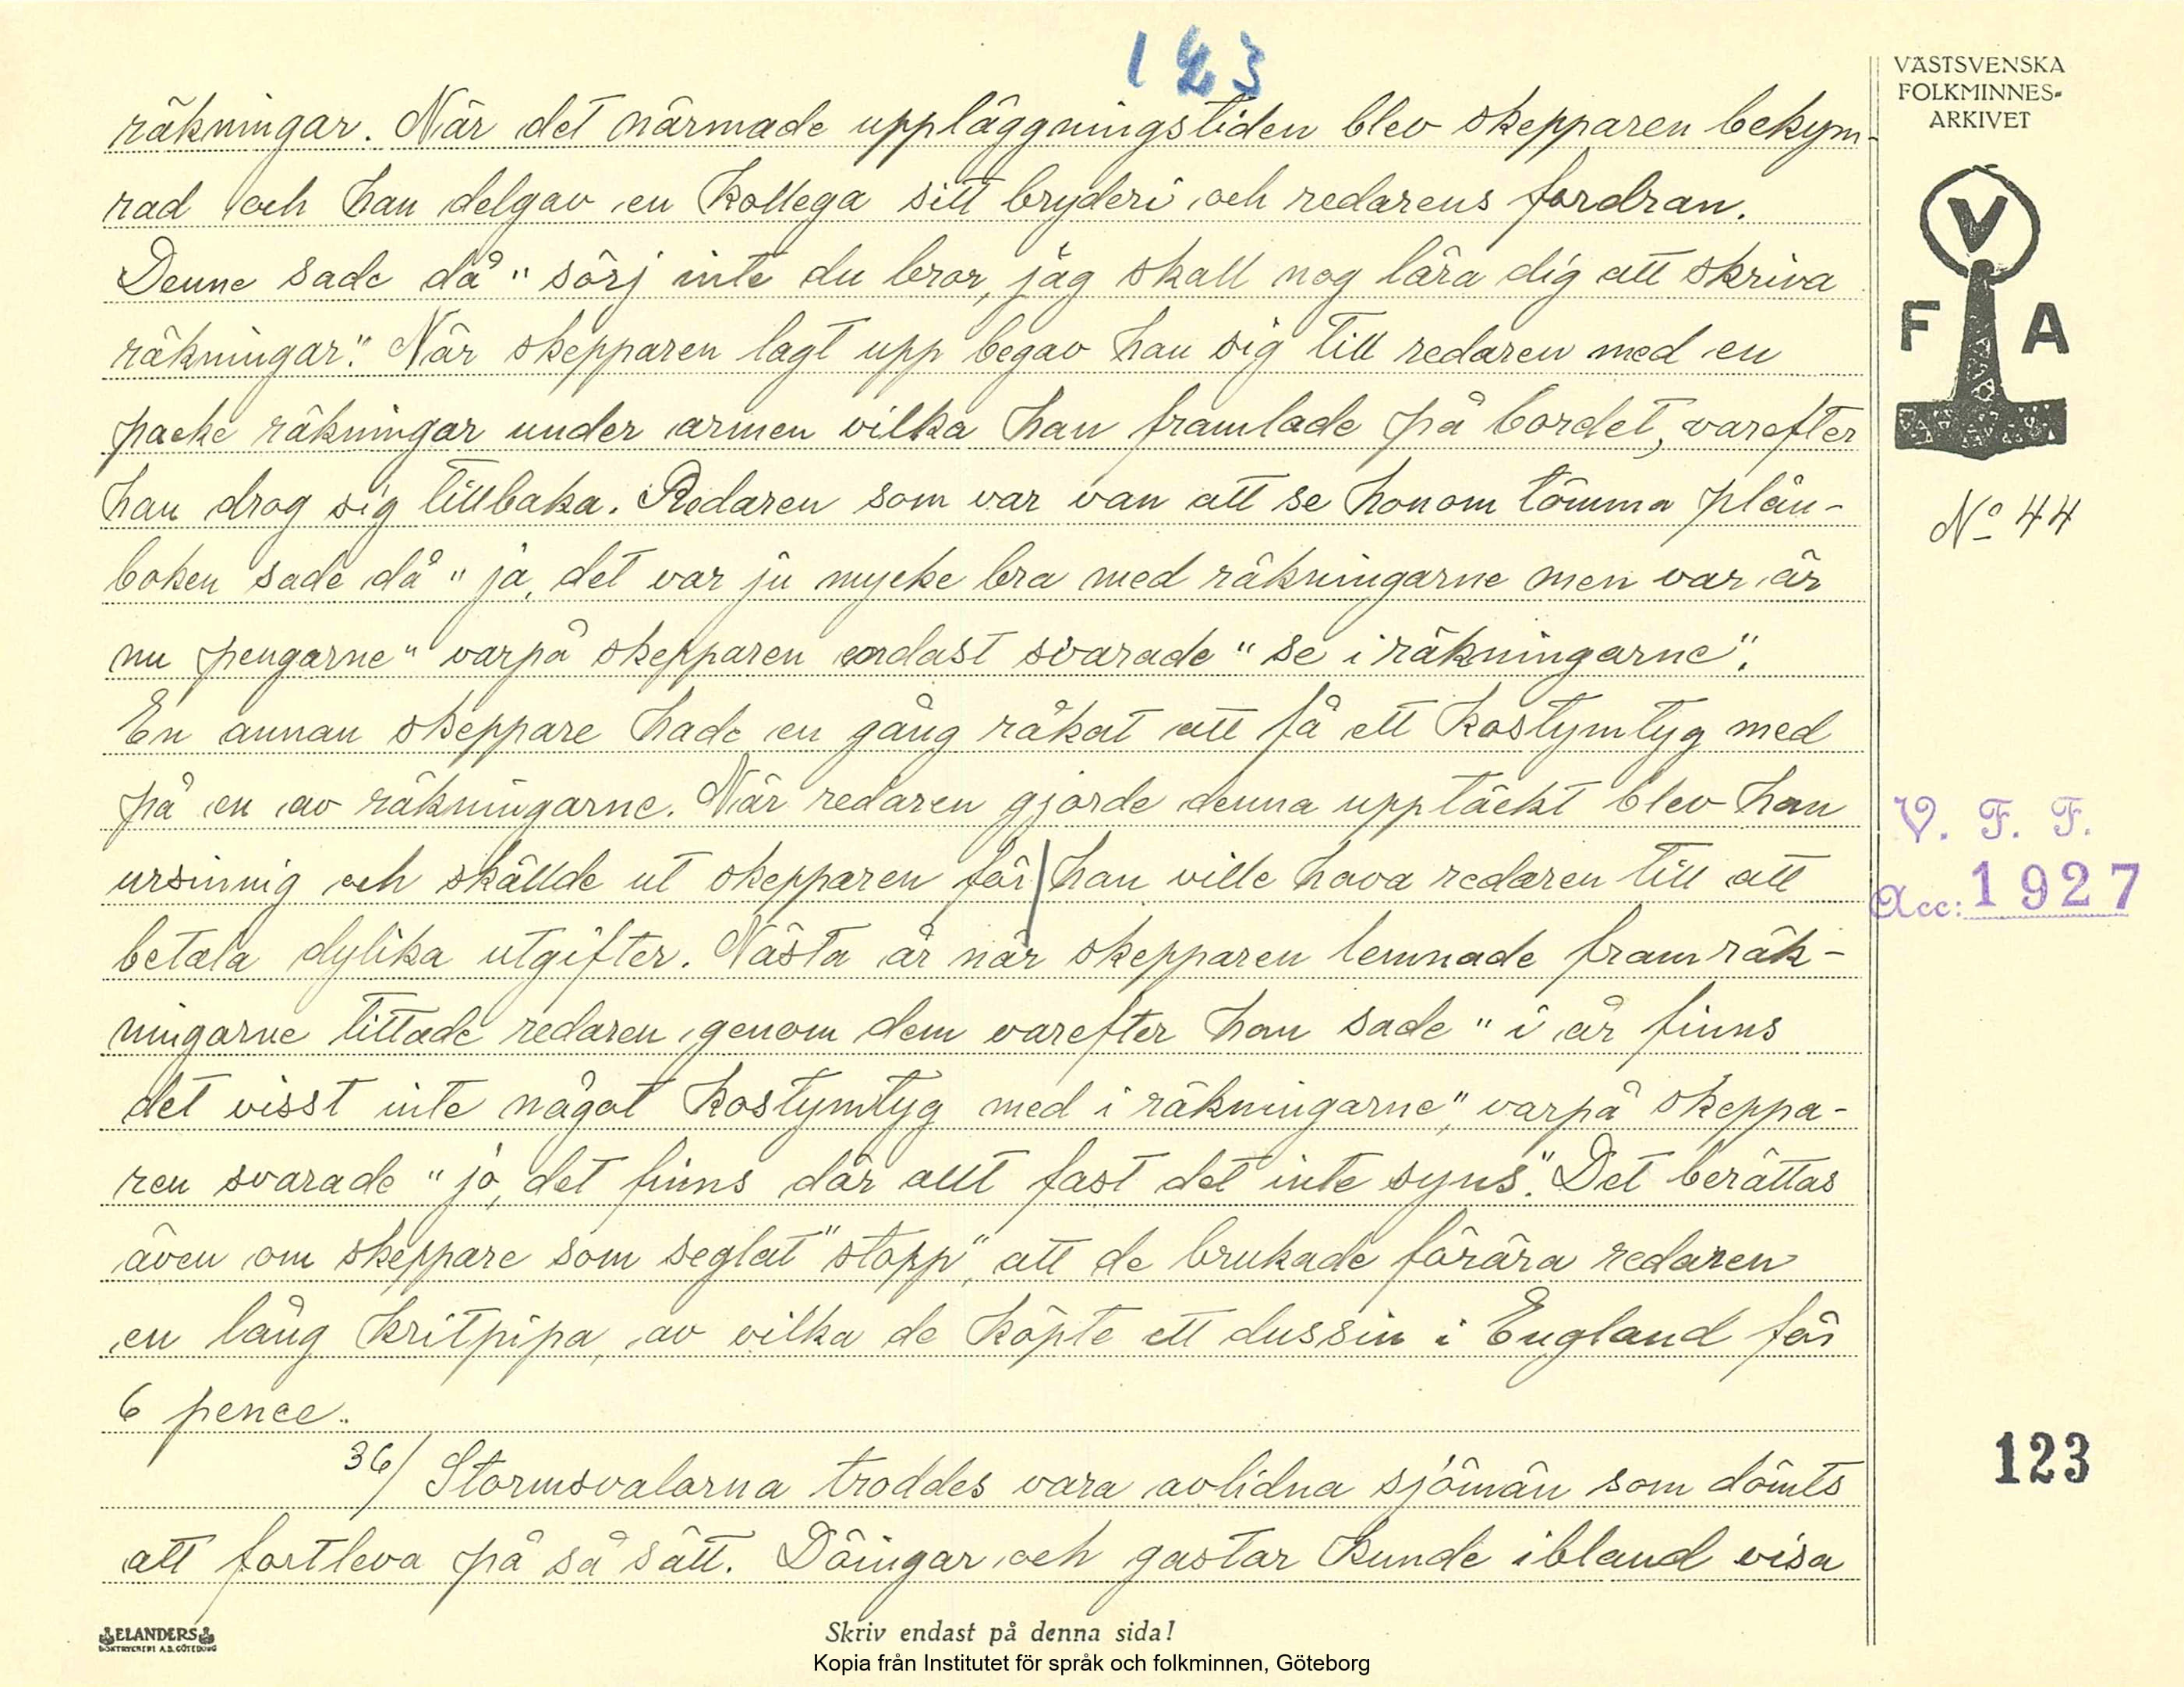 123
räkningar. När det närmade uppläggningstiden blev skepparen bekym-
rad och han delgav en kollega sitt bryderi och redarens fordran.
Denne sade då "sörj inte du bror, jag skall nog lära dig att skriva
räkningar". När skepparen lagt upp begav han sig till redaren med en
packe räkningar under armen vilka han framlade på bordet, varefter
han drog sig tillbaka. Redaren som var van att se honom tömma plån-
boken sade då "ja, det var ju mycke bra med räkningarne men var är
nu pengarne" varpå skepparen endast svarade "se i räkningarne".
En annan skeppare hade en gång råkat att få ett kostymtyg med
på en av räkningarne. När redaren gjorde denna upptäckt blev han
ursinnig och skällde ut skepparen för/han ville hava redaren till att
betala dylika utgifter. Nästa år när skepparen lemnade fram räk-
ningarne tittade redaren genom dem varefter han sade "i år finns
det visst inte något kostymtyg med i räkningarne", varpå skeppa-
ren svarade "jo, det finns där allt fast det inte syns". Det berättas
även om skeppare som seglat "stopp", att de brukade förära redaren
en lång kritpipa, av vilka de köpte ett dussin i England för
6 pence.
36/ Stormsvalorna troddes vara avlidna sjömän som dömts
att fortleva på så sätt. Döingar och gastar kunde ibland visa
VÄSTSVENSKA
FOLKMINNES-
ARKIVET
V
F A
No 44
V. F. F.
Acc: 1927
123
ELANDERS
BOKTRYCKERI A.B. GÖTEBORG
Skriv endast på denna sida!
Kopia från Institutet för språk och folkminnen, Göteborg